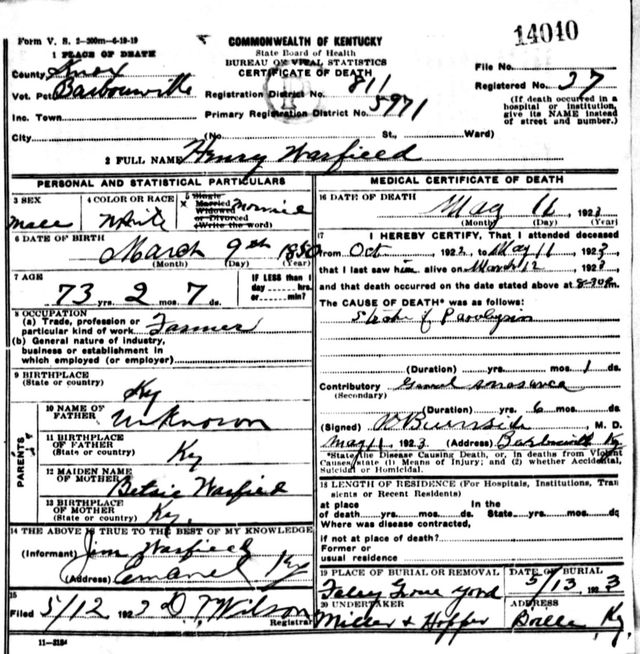 14040
Form V. S. 2-300m-6-19-19
1 PLACE OF DEATH
COMMONWEALTH OF KENTUCKY
State Board of Health
BUREAU OF VITAL STATISTICS
CERTIFICATE OF DEATH
County Knox
Vot. Pct Barbourville
Inc. Town
City
Registration District No. 811
Primary Registration District No. 5971
(No St., Ward)
File No.
Registered No. 27
(If death occurred in a hospital or institution, give its NAME instead of street and number.)
2 FULL NAME Henry Warfield
PERSONAL AND STATISTICAL PARTICULARS
3 SEX Male
4 COLOR OR RACE White
5 Single Married Widowed or Divorced (Write the word)
6 DATE OF BIRTH
March 9th 1850
(Month) (Day) (Year)
7 AGE
73 yrs. 2 mos. 7 ds.
IF LESS than 1 day ----- hrs. or ----- min?
8 OCCUPATION
(a) Trade, profession or particular kind of work Farmer
(b) General nature of industry, business or establishment in which employed (or employer)
9 BIRTHPLACE
(State or country) Ky
PARENTS
10 NAME OF FATHER Unknown
11 BIRTHPLACE OF FATHER
(State or country) Ky
12 MAIDEN NAME OF MOTHER Betsie Warfield
13 BIRTHPLACE OF MOTHER
(State or country) Ky.
14 THE ABOVE IS TRUE TO THE BEST OF MY KNOWLEDGE
(Informant) Jim Warfield
(Address) Emanuel Ky
15
Filed 5/12 192 D T Wilson
Registrar
11-3184
MEDICAL CERTIFICATE OF DEATH
16 DATE OF DEATH
May 11, 1923
(Month) (Day) (Year)
17 I HEREBY CERTIFY, That I attended deceased
from Oct 192 , to May 11 1923
that I last saw him alive on March 12 192
and that death occurred on the date stated above at
The CAUSE OF DEATH* was as follows:
Stroke of Paralysis
(Duration) yrs. mos. 1 ds.
Contributory
(Secondary)
(Duration) yrs. 6 mos. ds.
(Signed) Burnside, M. D.
May 11 1923 (Address) Barbourville Ky
*State the Disease Causing Death, or, in deaths from Violent Causes, state (1) Means of Injury; and (2) whether Accidental, Suicidal or Homicidal.
18 LENGTH OF RESIDENCE (For Hospitals, Institutions, Transients or Recent Residents)
at place of death yrs. mos. ds. In the State yrs. mos. ds
Where was disease contracted,
if not at place of death?
Former or usual residence
19 PLACE OF BURIAL OR REMOVAL
DATE OF BURIAL
5/13 1923
20 UNDERTAKER
Miller & Hopper
ADDRESS
Bville Ky.